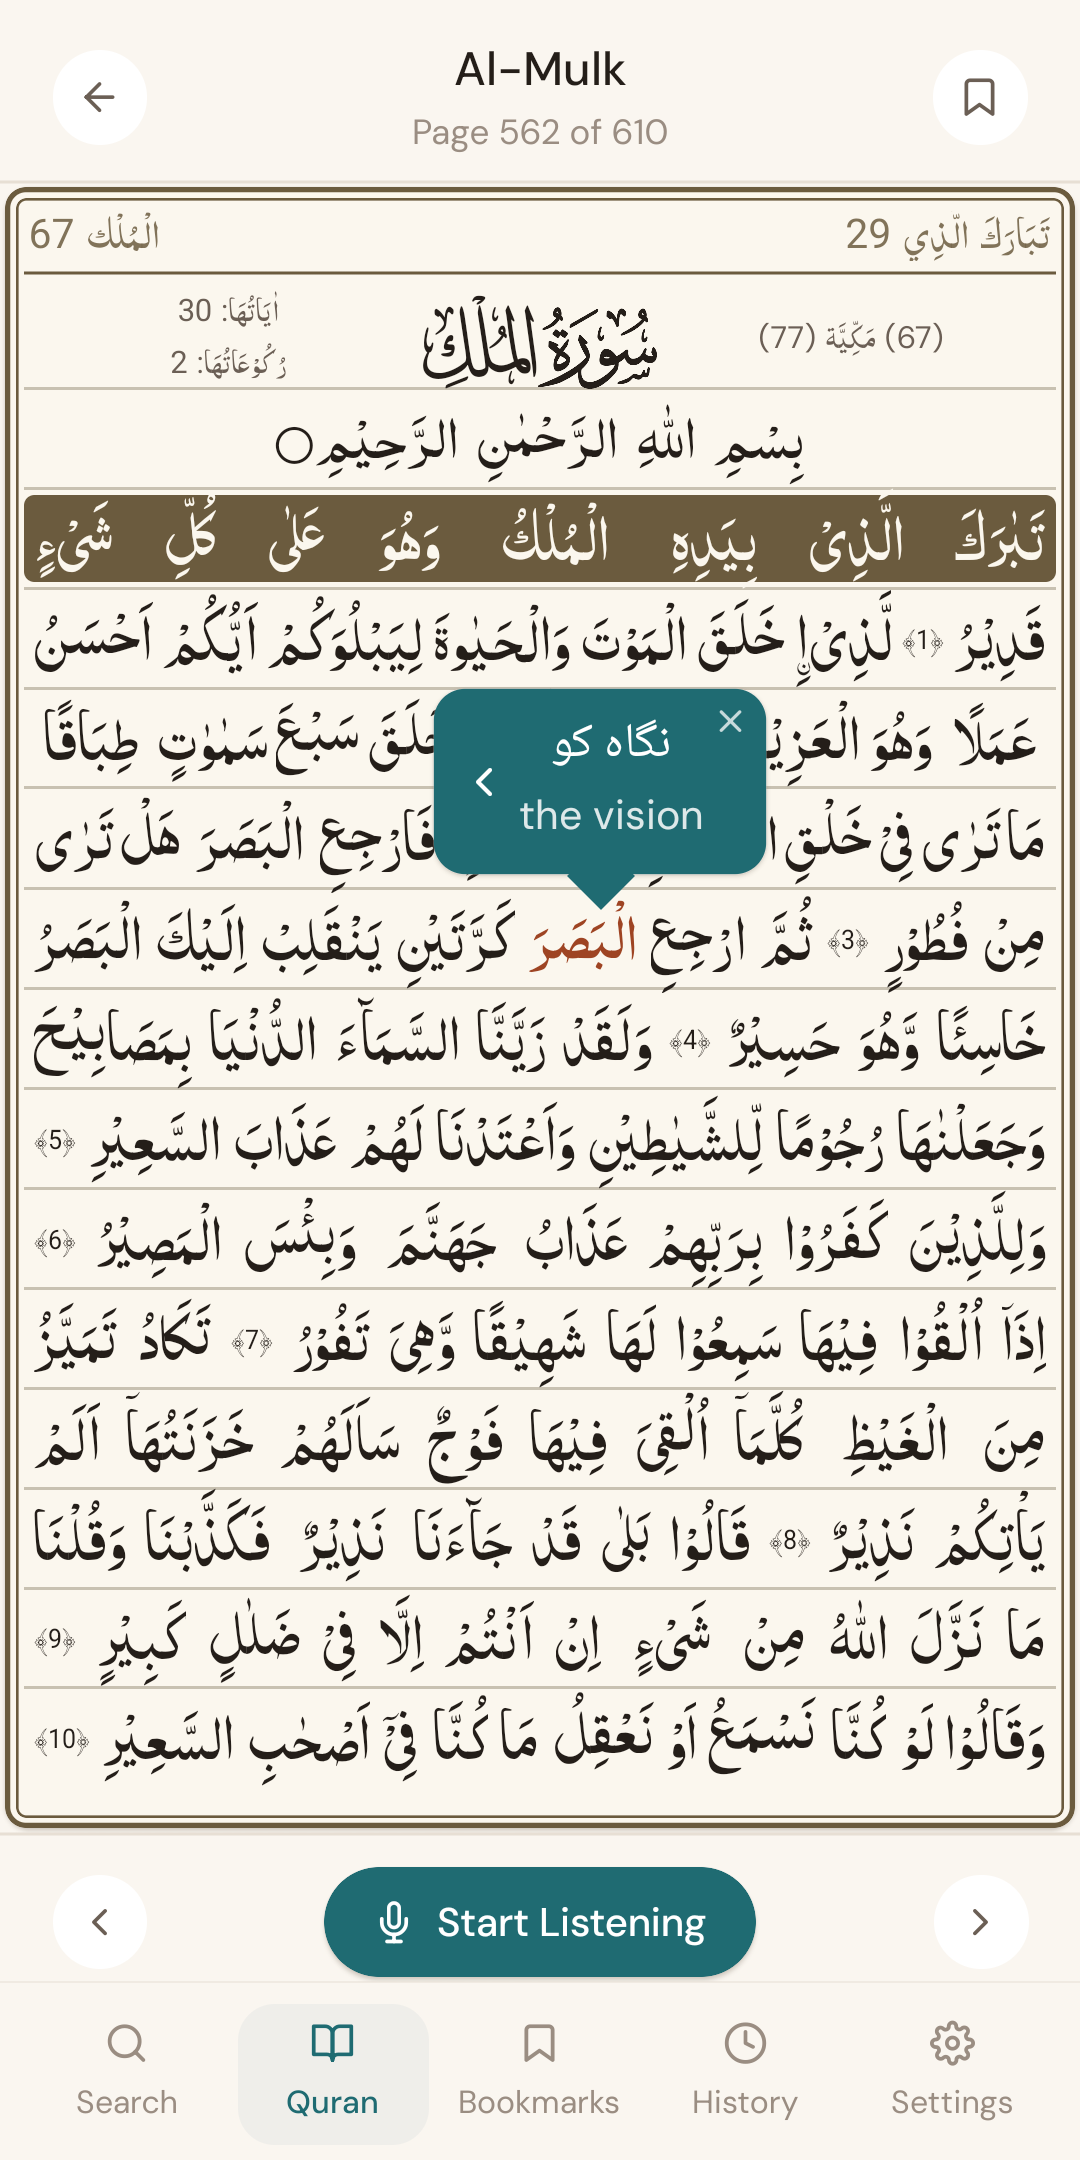 Al-Mulk
Page 562 of 610
تَبَارَكَ الَّذِي 29
الْمُلْك 67
(67) مَكِّيَّة (77)
سُوْرَةُ الْمُلْكِ
اٰيَاتُهَا: 30
رُكُوْعَاتُهَا: 2
بِسْمِ اللّٰهِ الرَّحْمٰنِ الرَّحِيْمِ○
تَبٰرَكَ الَّذِىْ بِيَدِهِ الْمُلْكُ وَهُوَ عَلٰى كُلِّ شَىْءٍ
قَدِيْرُ ﴿1﴾ ۨالَّذِىْ خَلَقَ الْمَوْتَ وَالْحَيٰوةَ لِيَبْلُوَكُمْ اَيُّكُمْ اَحْسَنُ
عَمَلًا وَهُوَ خَلَقَ سَبْعَ سَمٰوٰتٍ طِبَاقًا
نگاه کو
the vision
مَا تَرٰى فِىْ خَلْقِ فَارْجِعِ الْبَصَرَ هَلْ تَرٰى
مِنْ فُطُوْرٍ ﴿3﴾ ثُمَّ ارْجِعِ الْبَصَرَ كَرَّتَيْنِ يَنْقَلِبْ اِلَيْكَ الْبَصَرُ
خَاسِئًا وَّهُوَ حَسِيْرٌ ﴿4﴾ وَلَقَدْ زَيَّنَّا السَّمَآءَ الدُّنْيَا بِمَصَابِيْحَ
وَجَعَلْنٰهَا رُجُوْمًا لِّلشَّيٰطِيْنِ وَاَعْتَدْنَا لَهُمْ عَذَابَ السَّعِيْرِ ﴿5﴾
وَلِلَّذِيْنَ كَفَرُوْا بِرَبِّهِمْ عَذَابُ جَهَنَّمَ وَبِئْسَ الْمَصِيْرُ ﴿6﴾
اِذَآ اُلْقُوْا فِيْهَا سَمِعُوْا لَهَا شَهِيْقًا وَّهِىَ تَفُوْرُ ﴿7﴾ تَكَادُ تَمَيَّزُ
مِنَ الْغَيْظِ كُلَّمَآ اُلْقِىَ فِيْهَا فَوْجٌ سَاَلَهُمْ خَزَنَتُهَآ اَلَمْ
يَاْتِكُمْ نَذِيْرٌ ﴿8﴾ قَالُوْا بَلٰى قَدْ جَآءَنَا نَذِيْرٌ فَكَذَّبْنَا وَقُلْنَا
مَا نَزَّلَ اللّٰهُ مِنْ شَىْءٍ اِنْ اَنْتُمْ اِلَّا فِىْ ضَلٰلٍ كَبِيْرٍ ﴿9﴾
وَقَالُوْا لَوْ كُنَّا نَسْمَعُ اَوْ نَعْقِلُ مَا كُنَّا فِىْٓ اَصْحٰبِ السَّعِيْرِ ﴿10﴾
Start Listening
Search
Quran
Bookmarks
History
Settings